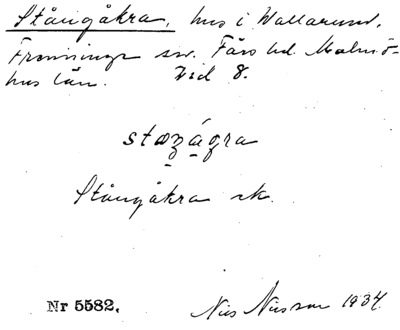 Stångåkra, hus i Wallarum,
Frenninge sn. Färs hd. Malmö-
hus län. Vid 8.
stœn̥ágra
Stångåkra sk.
Nr 5582.
Nils Nilsson 1934